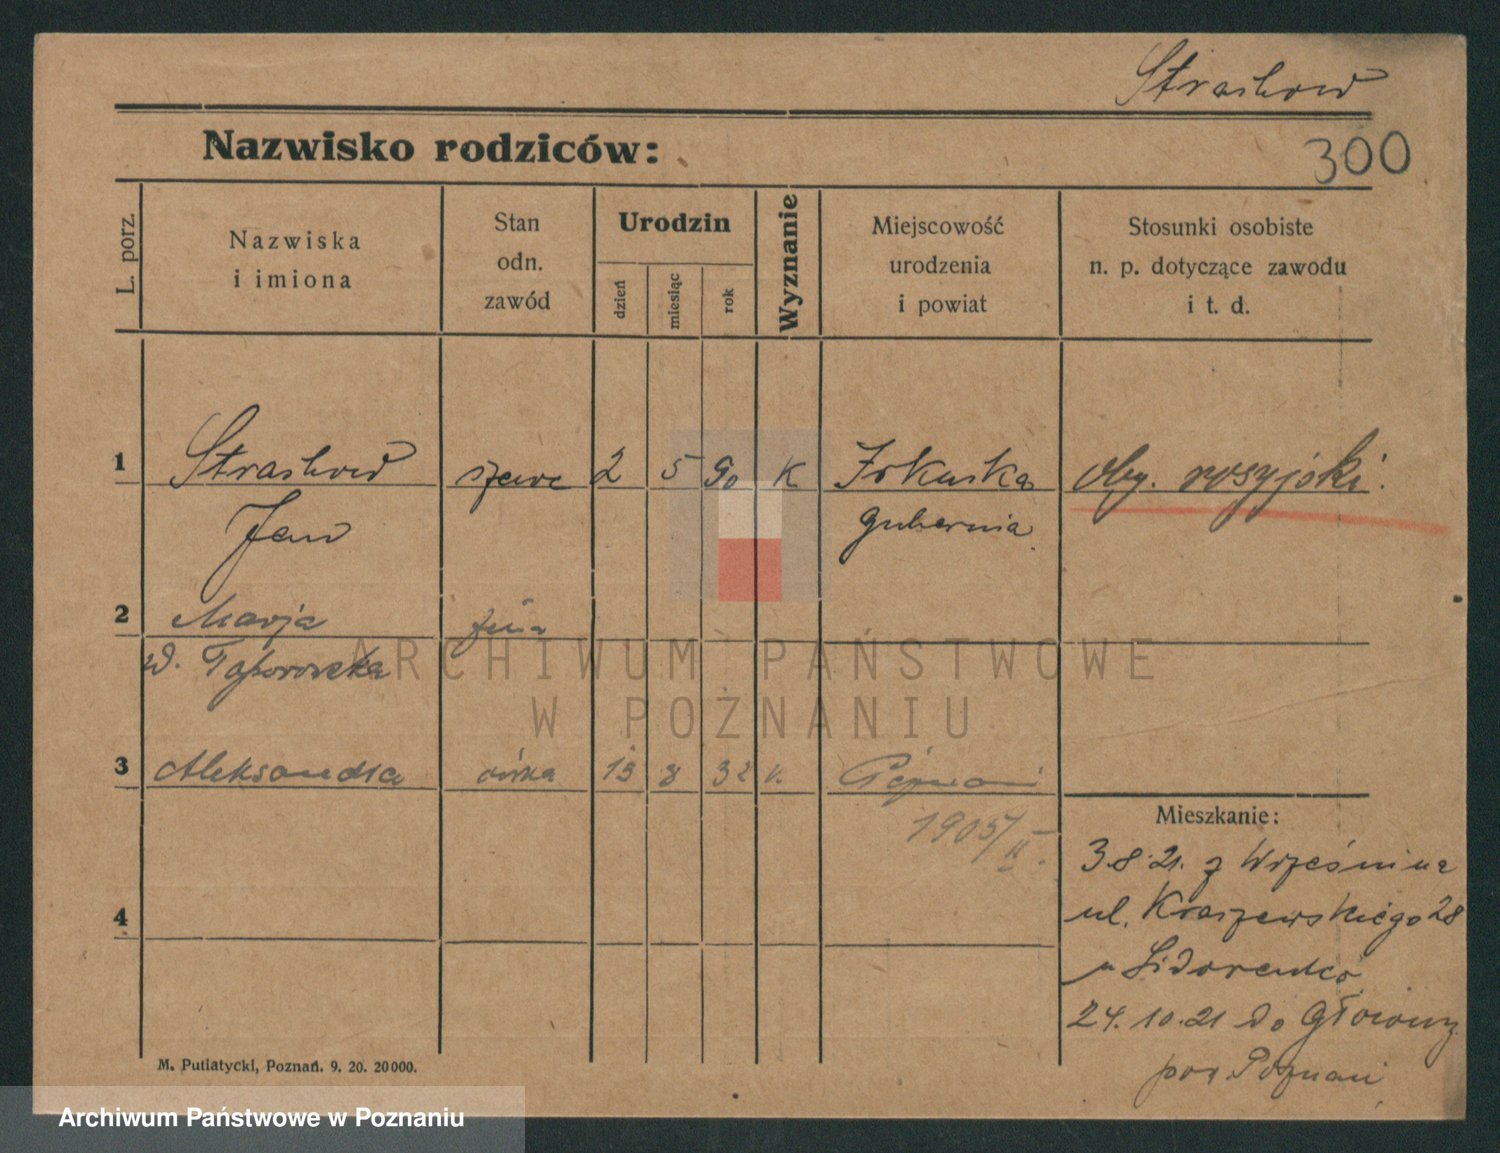 Strashow
Nazwisko rodziców:
300
L. porz.
Nazwiska
i imiona
Stan
odn.
zawód
Urodzin
dzień
miesiąc
rok
Wyznanie
Miejscowość
urodzenia
i powiat
Stosunki osobiste
n. p. dotyczące zawodu
i t. d.
1 Strashow szewc 2 5 90 K Irkuska oby. rosyjski.
Jan gubernia
2 Marja
w. Toporowska
3 Aleksandra córka 15 8 32 K. Poznań
1905/II.
4
Mieszkanie:
3.8.21. z Wrześni na
ul. Kraszewskiego 28
u Sidorenko
24.10.21 do Główny
pow. Poznań
M. Putiatycki, Poznań. 9. 20. 20000.
ARCHIWUM PAŃSTWOWE
W POZNANIU
Archiwum Państwowe w Poznaniu